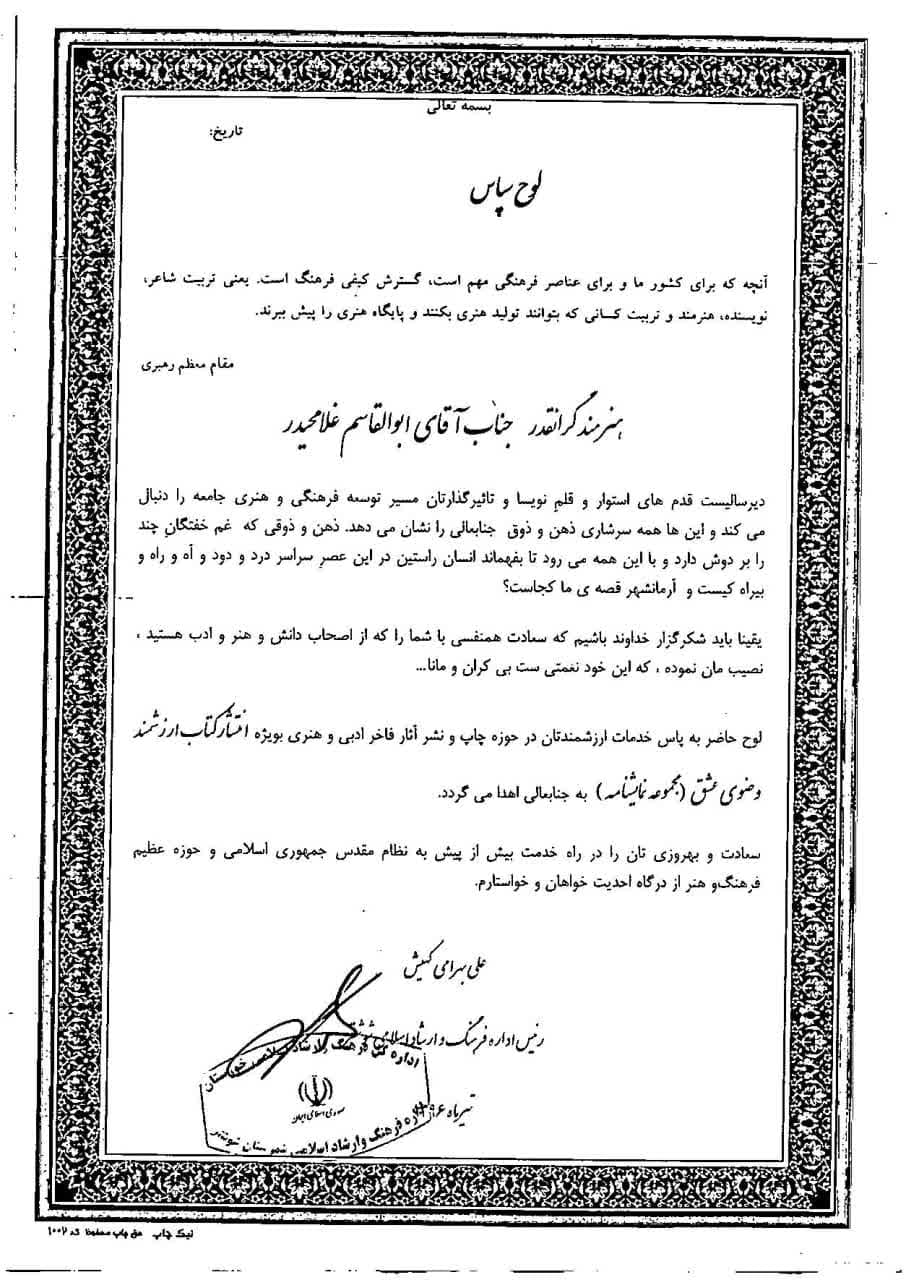 بسمه تعالی
تاریخ:
لوح سپاس
آنچه که برای کشور ما و برای عناصر فرهنگی مهم است، گسترش کیفی فرهنگ است. یعنی تربیت شاعر،
نویسنده، هنرمند و تربیت کسانی که بتوانند تولید هنری بکنند و پایگاه هنری را پیش ببرند.
مقام معظم رهبری
هنرمند گرانقدر جناب آقای ابوالقاسم غلامحیدر
دیرسالیست قدم های استوار و قلم نویسا و تاثیرگذارتان مسیر توسعه فرهنگی و هنری جامعه را دنبال
می کند و این ها همه سرشاری ذهن و ذوق جنابعالی را نشان می دهد. ذهن و ذوقی که غم خفتگانِ چند
را بر دوش دارد و با این همه می رود تا بفهماند انسان راستین در این عصرِ سراسر درد و دود و آه و راه و
بیراه کیست و آرمانشهر قصه ی ما کجاست؟
یقینا باید شکرگزار خداوند باشیم که سعادت همنفسی با شما را که از اصحاب دانش و هنر و ادب هستید ،
نصیب مان نموده ، که این خود نعمتی ست بی کران و مانا...
لوح حاضر به پاس خدمات ارزشمندتان در حوزه چاپ و نشر آثار فاخر ادبی و هنری بویژه انتشار کتاب ارزشمند
وضوی عشق (مجموعه نمایشنامه) به جنابعالی اهدا می گردد.
سعادت و بهروزی تان را در راه خدمت بیش از پیش به نظام مقدس جمهوری اسلامی و حوزه عظیم
فرهنگ و هنر از درگاه احدیت خواهان و خواستارم.
علی بهرامی کمیش
رئیس اداره فرهنگ و ارشاد اسلامی
اداره کل فرهنگ و ارشاد اسلامی خوزستان
جمهوری اسلامی ایران
تیرماه ۹۶
اداره فرهنگ و ارشاد اسلامی شهرستان شوشتر
نیک چاپ حق چاپ محفوظ کد ۱۰۰۲